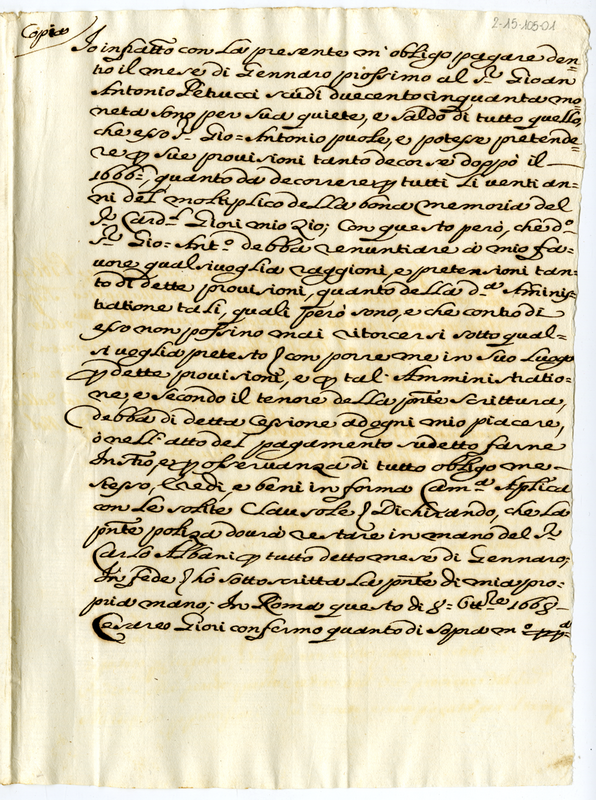 2-15-105-01
Copia
Io infratto con la presente m'obligo pagare den=
tro il mese di Gennaro prossimo al Sr Gioan
Antonio Petucci scudi duecentocinquanta mo=
neta sono per sua quiete, e saldo di tutto quello,
che esso Sr Gio= Antonio puole, e potesse pretende=
re p sue provisioni tanto decorse doppo il
1666=, quanto da decorrere p tutti li venti an=
ni del moltiplico della bona memoria del
Sr Cardl Giori mio Zio; Con questo però, che do
Sr Gio= Anto debba renuntiare à mio fa=
uore qualsiuoglia raggioni, e pretensioni tan=
to di dette provisioni, quanto della da Aminis=
tratione tali, quali però sono, e che contro di
esso non possino mai ritorcersi sotto qual=
siuoglia pretesto, con porre me in suo luogo
p dette provisioni, e p tal' Amministratio=
ne, e secondo il tenore della pnte scrittura,
debba di detta Cessione ad ogni mio piacere,
ò nell' atto del pagamento sudetto farne
Instro, e p osservanza di tutto obligo me=
stesso, Eredi, e beni in forma Cama Aplica
con le solite Clausole, Dichirando, che la
pnte poliza dourà restare in mano del Sr
Carlo Albani p tutto detto mese di Gennaro;
In fede ho sottoscritta la pnte di mia pro=
pria mano; In Roma questo di 8= Ottre 1668
Cesareo Giori confermo quanto di sopra mo ppa